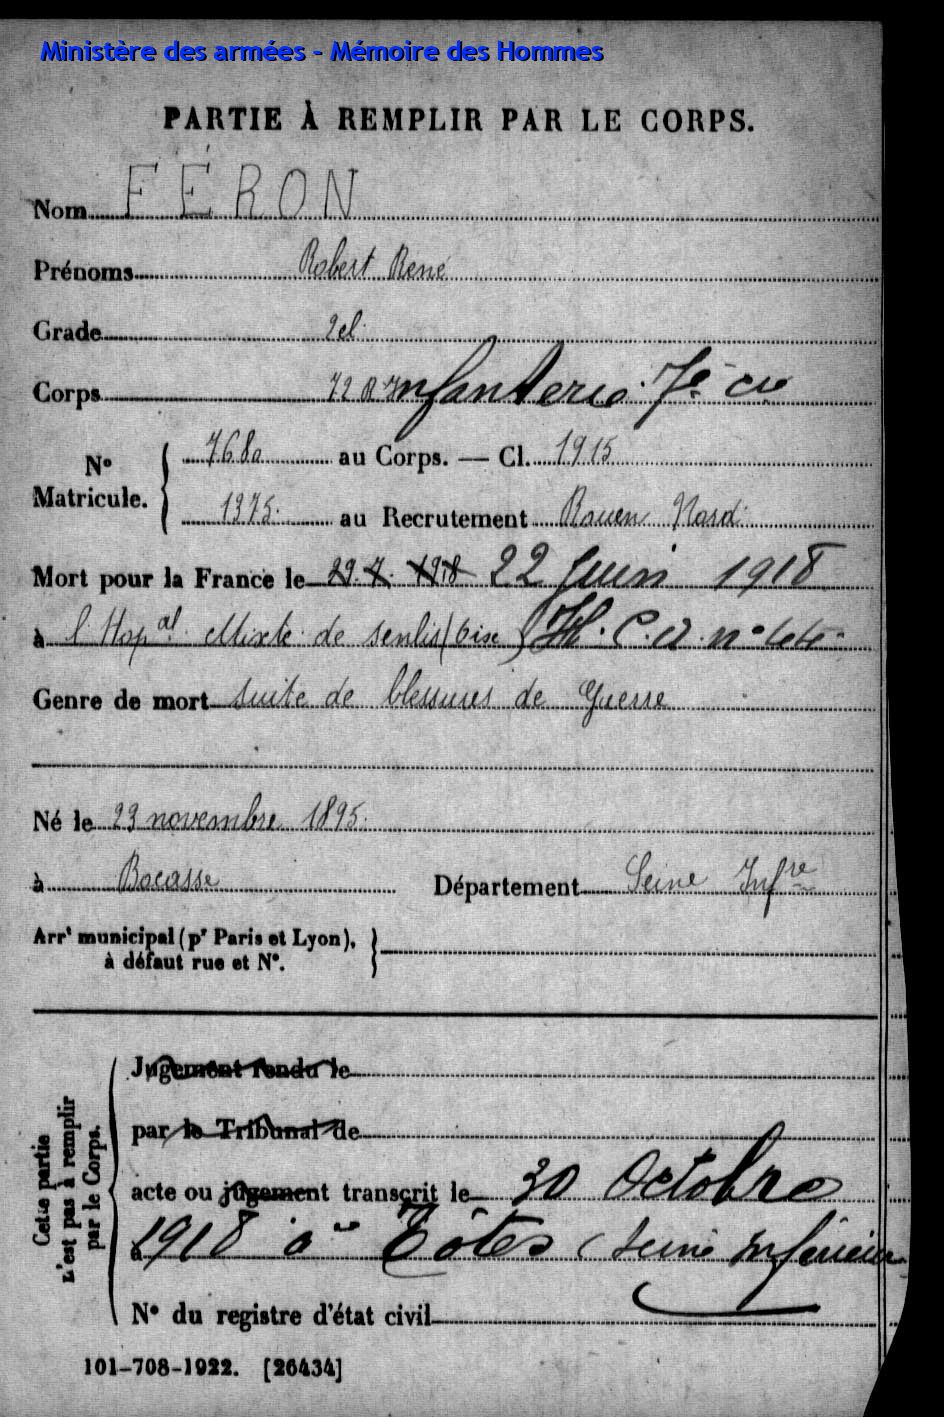 Ministère des armées - Mémoire des Hommes
PARTIE À REMPLIR PAR LE CORPS.
Nom FÉRON
Prénoms Robert René
Grade 2cl.
Corps 72 R Infanterie 7e Cie
No Matricule. { 7680 au Corps. — Cl. 1915
1375. au Recrutement Rouen Nord
Mort pour la France le 29.7. 1918 22 Juin 1918
à l'Hopal Mixte de Senlis (Oise) H.C.A no 44.
Genre de mort suite de blessures de Guerre
Né le 23 novembre 1895.
à Bocasse Département Seine Infre
Arrt municipal (pr Paris et Lyon),
à défaut rue et No.
Cette partie
n'est pas à remplir
par le Corps.
Jugement rendu le
par le Tribunal de
acte ou jugement transcrit le 30 Octobre
à 1918 à Tôtes (Seine Inférieure
No du registre d'état civil
101-708-1922. [26434]